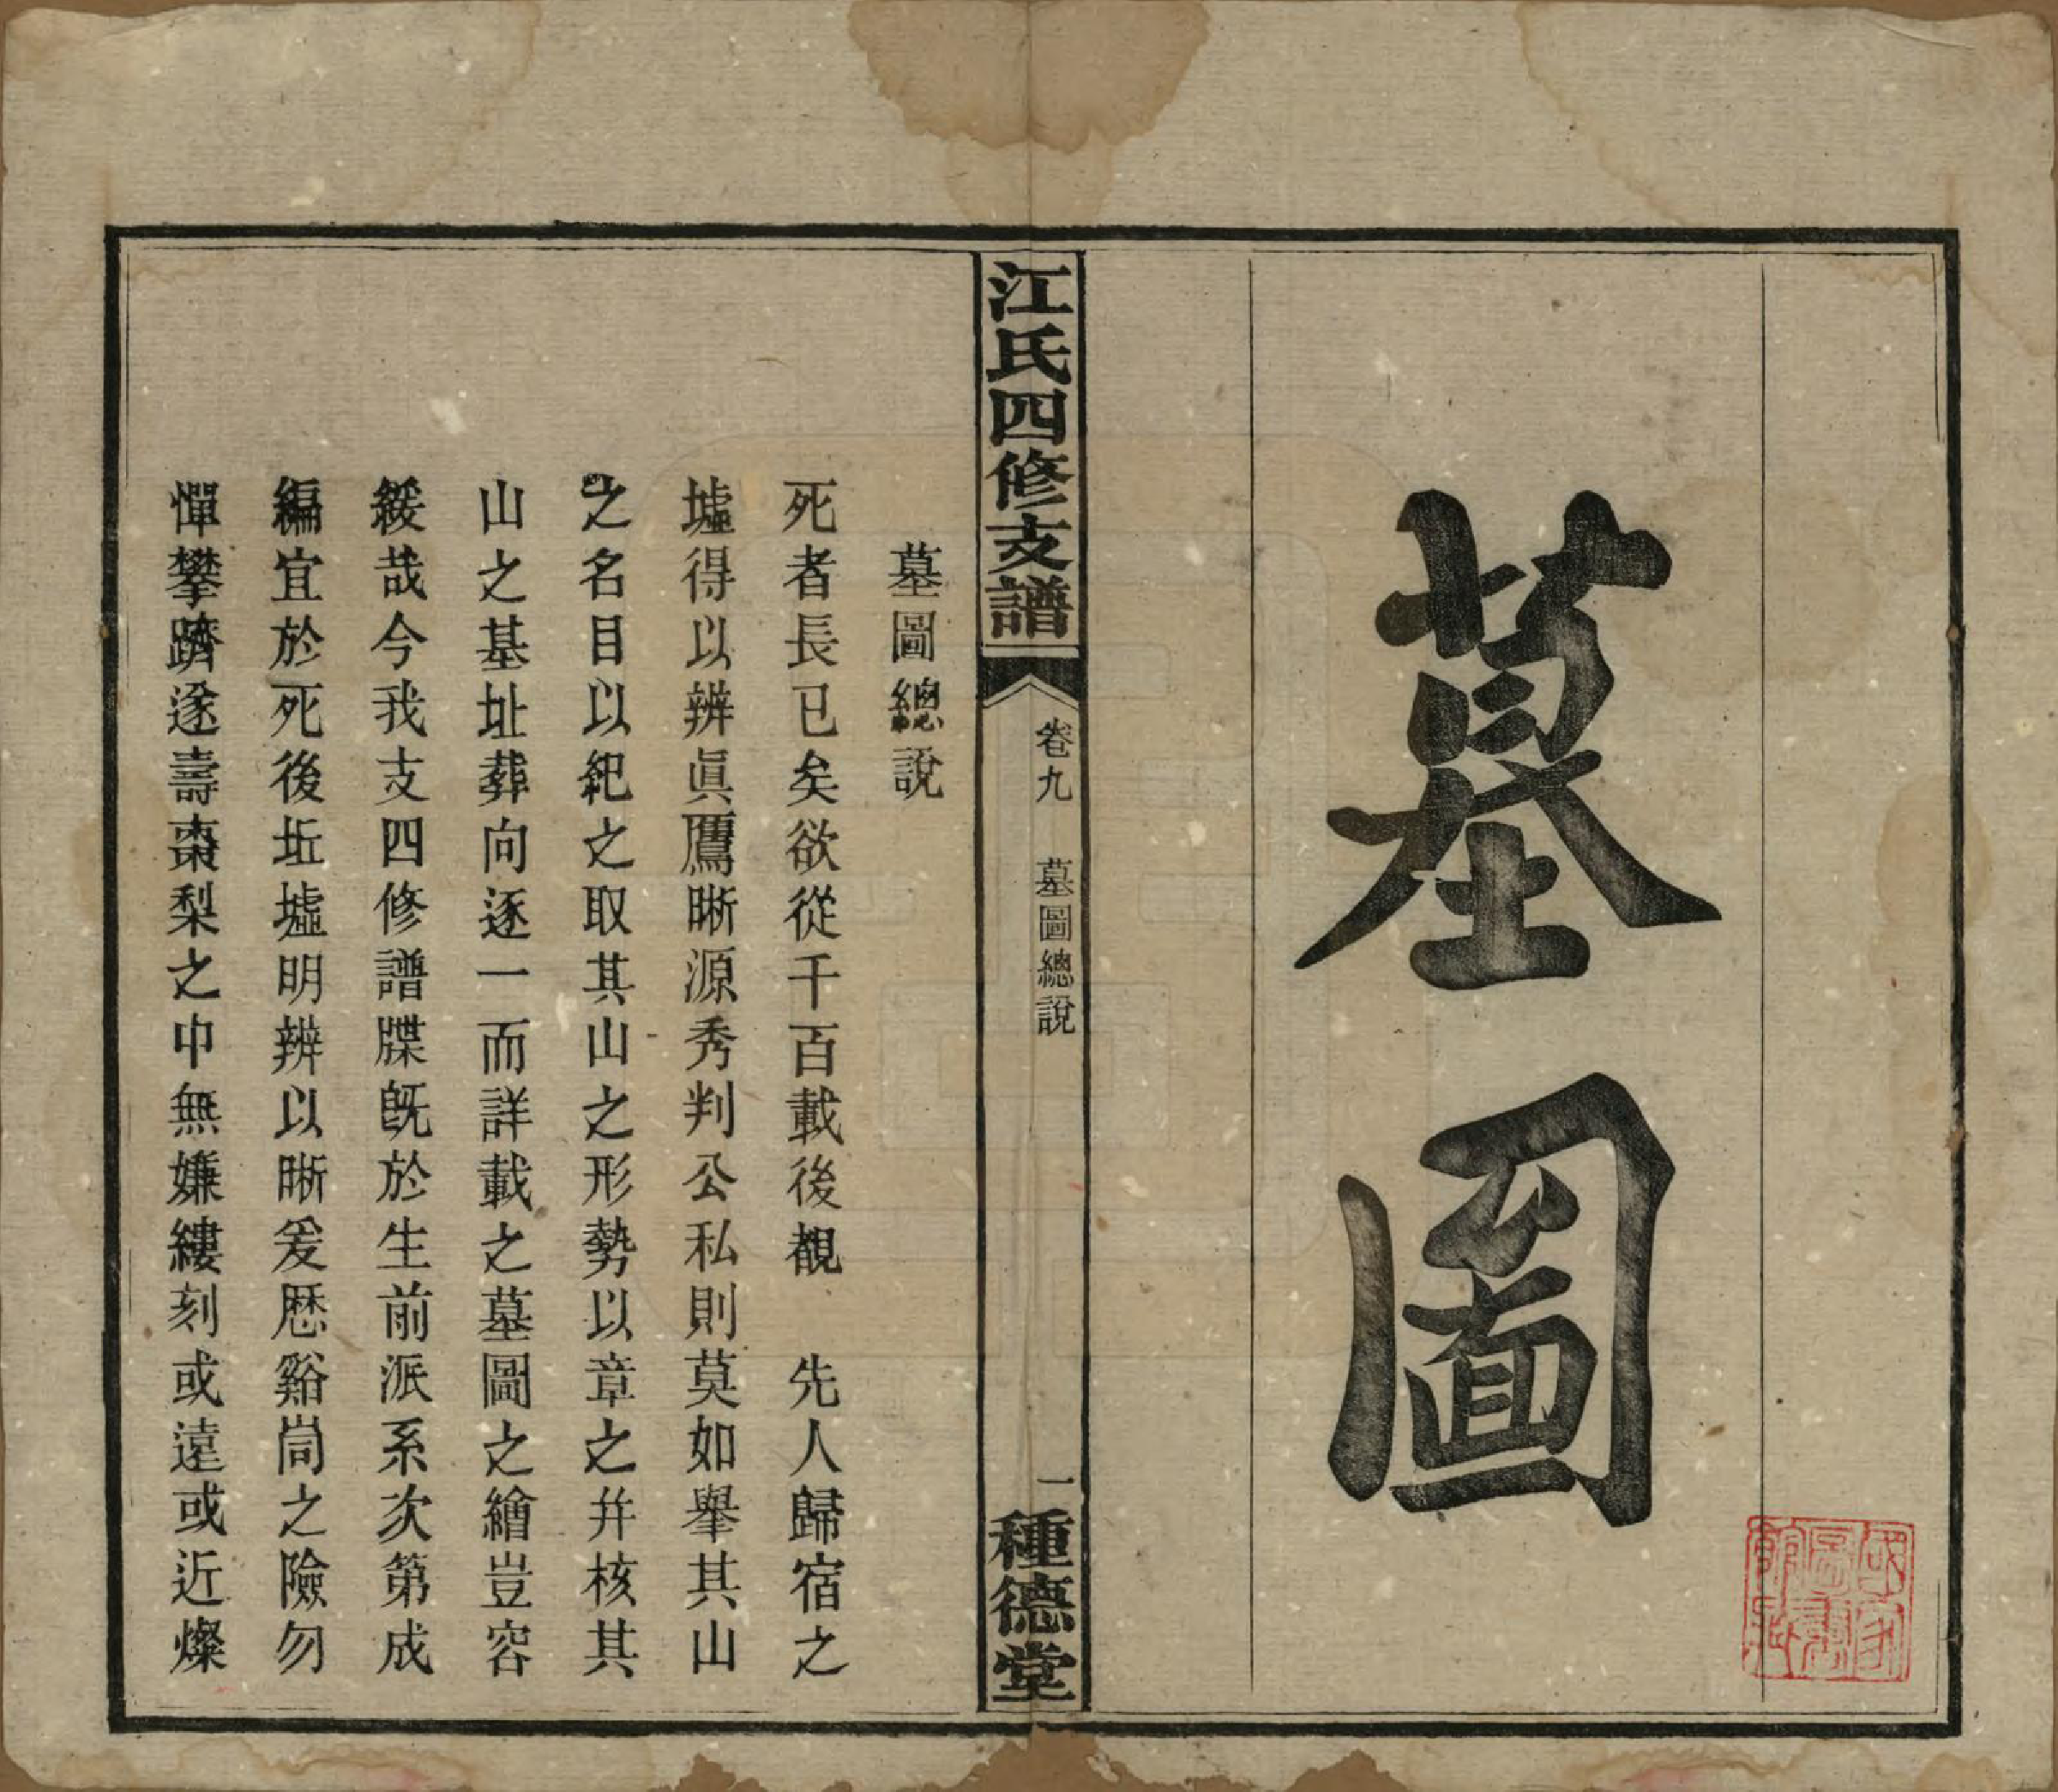 墓圖
江氏四修支譜
卷九 墓圖總說
一
種德堂
墓圖總說
死者長已矣欲從千百載後覩 先人歸宿之
墟得以辨眞鷹晰源秀判公私則莫如舉其山
之名目以紀之取其山之形勢以章之幷核其
山之基址葬向逐一而詳載之墓圖之繪豈容
緩哉今我支四修譜牒旣於生前派系次第成
編宜於死後坵墟明辨以晰爰歷谿峝之險勿
憚攀躋遂壽棗梨之中無嫌縷刻或遠或近燦
國家圖書館藏